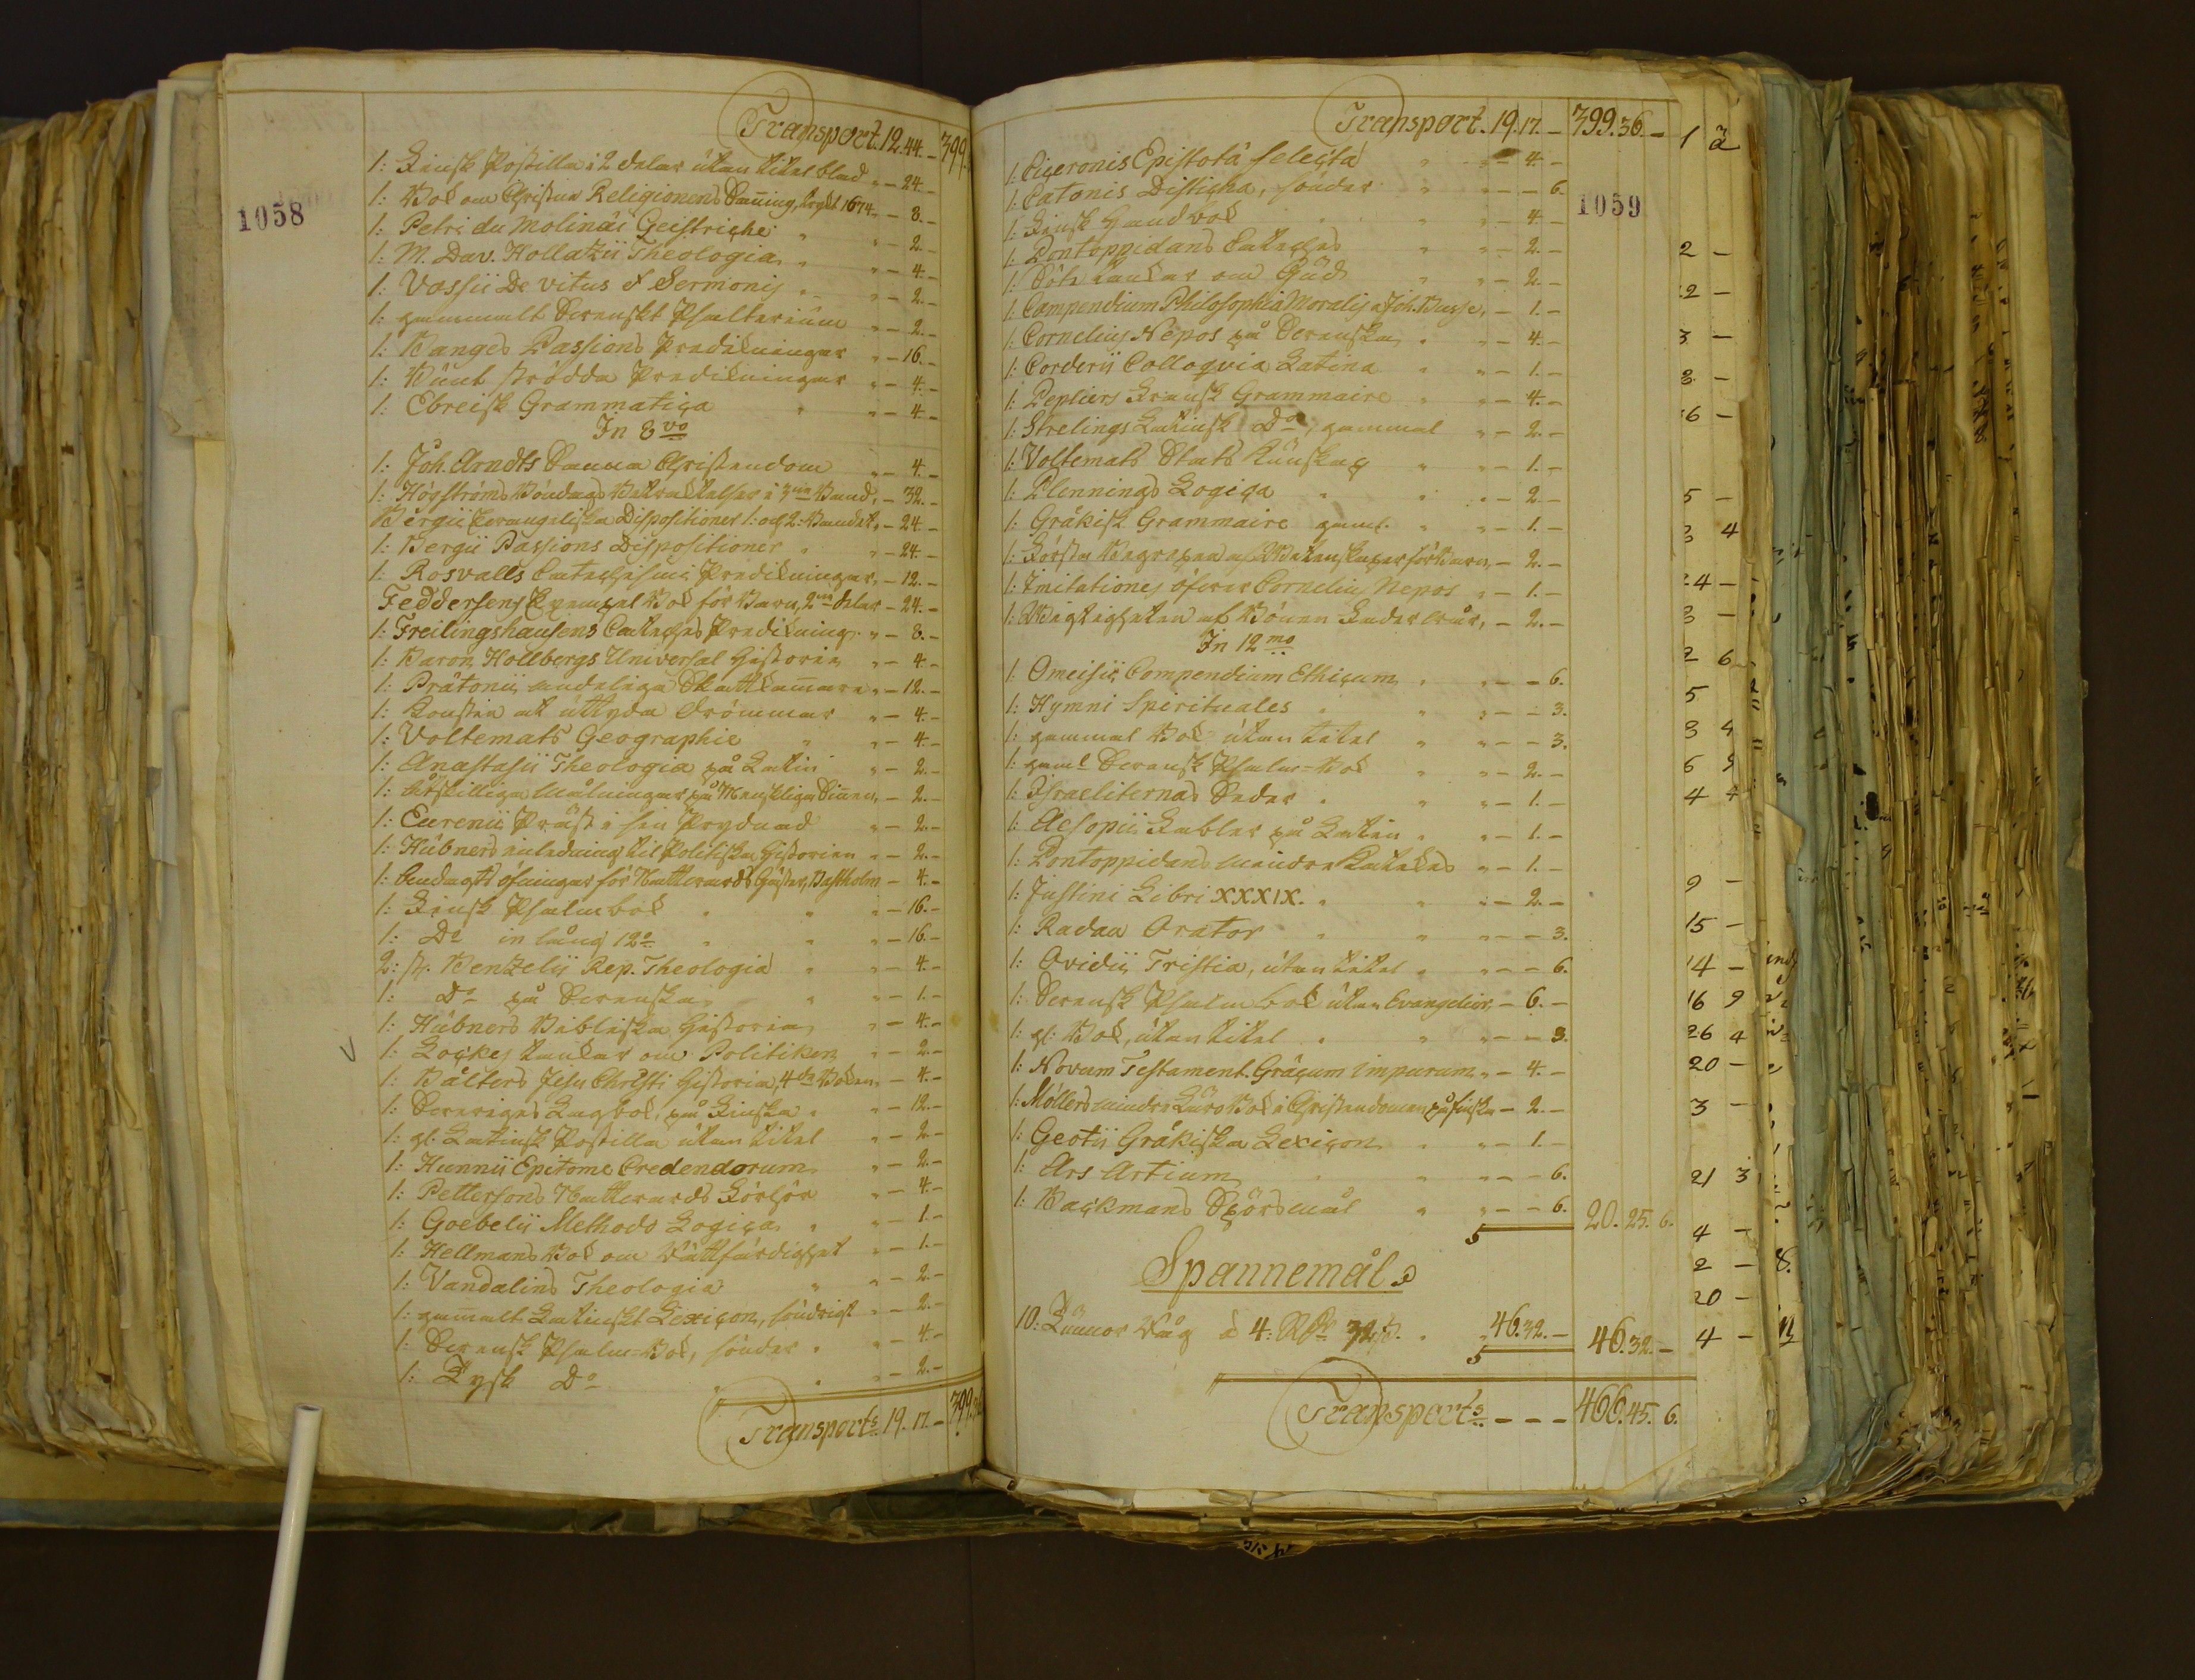 Transport. 12. 44. – 399.
1: Finsk Postilla i 2 delar utan titel blad " – 24. –
1058
1: Bok om Christna Religionens Sanning, tryckt 1674 – 8. –
1: Petri du Molinäi Geistriche " " – 2. –
1: M. Dav. Hollatzii Theologia " " – 4. –
1: Vossii De vitus & Sermonis " " – 2. –
1: gammalt Svenskt Psalterium " – 2. –
1: Ranges Passions Predikningar " – 16. –
1: Bunt strödda Predikningar " – 4. –
1: Ebreisk Grammatica " " – 4. –
In 8vo
1: Joh. Arndts Sanna Christendom " – 4. –
1: Högströms Böndags Betraktelser i 3ne Band, – 32. –
Bergii Evangeliska Dispositioner 1: och 2: Bandet, – 24. –
1: Bergii Passions Dispositioner " " – 24. –
1: Rosvalls Catechismi Predikningar, – 12. –
Feddersens Exempel Bok för Barn, 2ne delar – 24. –
1: Freilingshausens Cateches Predikning. " – 8. –
1: Baron Hollbergs Universal Historia " – 4. –
1: Prätorii andeliga Skattkammare " – 12. –
1: Konsten at uttyda Drömmar " – 4. –
1: Voltemats Geographie " " – 4. –
1: Anastasii Theologia på Latin " – 2. –
1: Åtskilliga målningar på Menskliga Sinnen, – 2. –
1: Eurenii Präst i sin Prydnad " – 2. –
1: Hübners inledning til Politiska Historien " – 2. –
1: Andagts öfningar för Nattvards Gäster, Bastholm – 4. –
1: Finsk Psalmbok " " " – 16. –
1: Do in lång 12o " " " – 16. –
2: st. Bentzelii Rep. Theologia " " – 4. –
1: Do på Svenska " " – 1. –
1: Hübners Bibliska Historia " – 4. –
1: Lockes tankar om Politiken " – 2. –
1: Bälters Jesu Christi Historia, 4de Boken – 4. –
1: Sveriges Lagbok, på Finska " " – 12. –
1: gl. Latinsk Postilla utan titel " – 2. –
1: Hunnii Epitome Credendorum " – 2. –
1: Pettersons Nattvards Förhör " – 4. –
1: Goebelii Methods Logica " " – 1. –
1: Hellmans Bok om Rättfärdighet " – 1. –
1: Vandalins Theologia " " – 2. –
1: gammalt Latinskt Lexicon, söndrigt " – 2. –
1: Svensk Psalm-Bok, sönder " " – 4. –
1: Tysk Do " " " – 2. –
Transports. 19. 17. – 399.
Transport. 19. 17. – 399. 36. –
1: Ciceronis Epistolä selecta " " – 4. –
1: Catonis Disticha, sönder " " – – 6.
1059
1: Finsk Handbok " " – 4. –
1: Pontoppidans Cateches " " – 2. –
1: Söta tankar om Gud " " – 2. –
1: Compendium Philosophia Moralis a Joh. Busse, – 1. –
1: Cornelius Nepos på Svenska " " – 4. –
1: Corderii Colloqvia Latina " " – 1. –
1: Pepliers Fransk Grammaire " " – 4. –
1: Strelings Latinsk Do, gammal " – 2. –
1: Voltemats Stats Kunskap " " – 1. –
1: Plennings Logica " " " – 2. –
1: Gräkisk Grammaire gaml. " " – 1. –
1: Första Begrepen af Wetenskaper för Barn, – 2. –
1: Imitationes öfver Cornelius Nepos " – 1. –
1: Wigtigheten af Bönen Fader vår, – 2. –
In 12mo
1: Omeisii Compendium Ethicum " " – – 6.
1: Hymni Spirituales " " " – – 3.
1: gammal Bok utan titel " " – – 3.
1: gaml. Svensk Psalm-Bok " " – 2. –
1: Israeliternas Seder " " " – 1. –
1: Aesopii Fabler på Latin " " – 1. –
1: Pontoppidans mindre Cateches " – 1. –
1: Justini Libri XXXIX. " " " – 2. –
1: Radau Orator " " " – – 3.
1: Ovidii Tristia, utan titel " " – – 6.
1: Svensk Psalmbok utan Evangelier, – 6. –
1: gl. Bok, utan titel " " " – – 3.
1: Novum Testament. Gräcum impurum " – 4. –
1: Möllers mindre Läro Bok i Christendomen på finska – 2. –
1: Geotii Gräkiska Lexicon " " – 1. –
1: Ars Artium " " " – – 6.
1: Backmans Spörsmål " " – – 6. 20. 25. 6.
Spannemål
10: Tunnor Råg à 4: Rd 32 s. " " 46. 32. – 46. 32. –
Transports – – – 466. 45. 6.